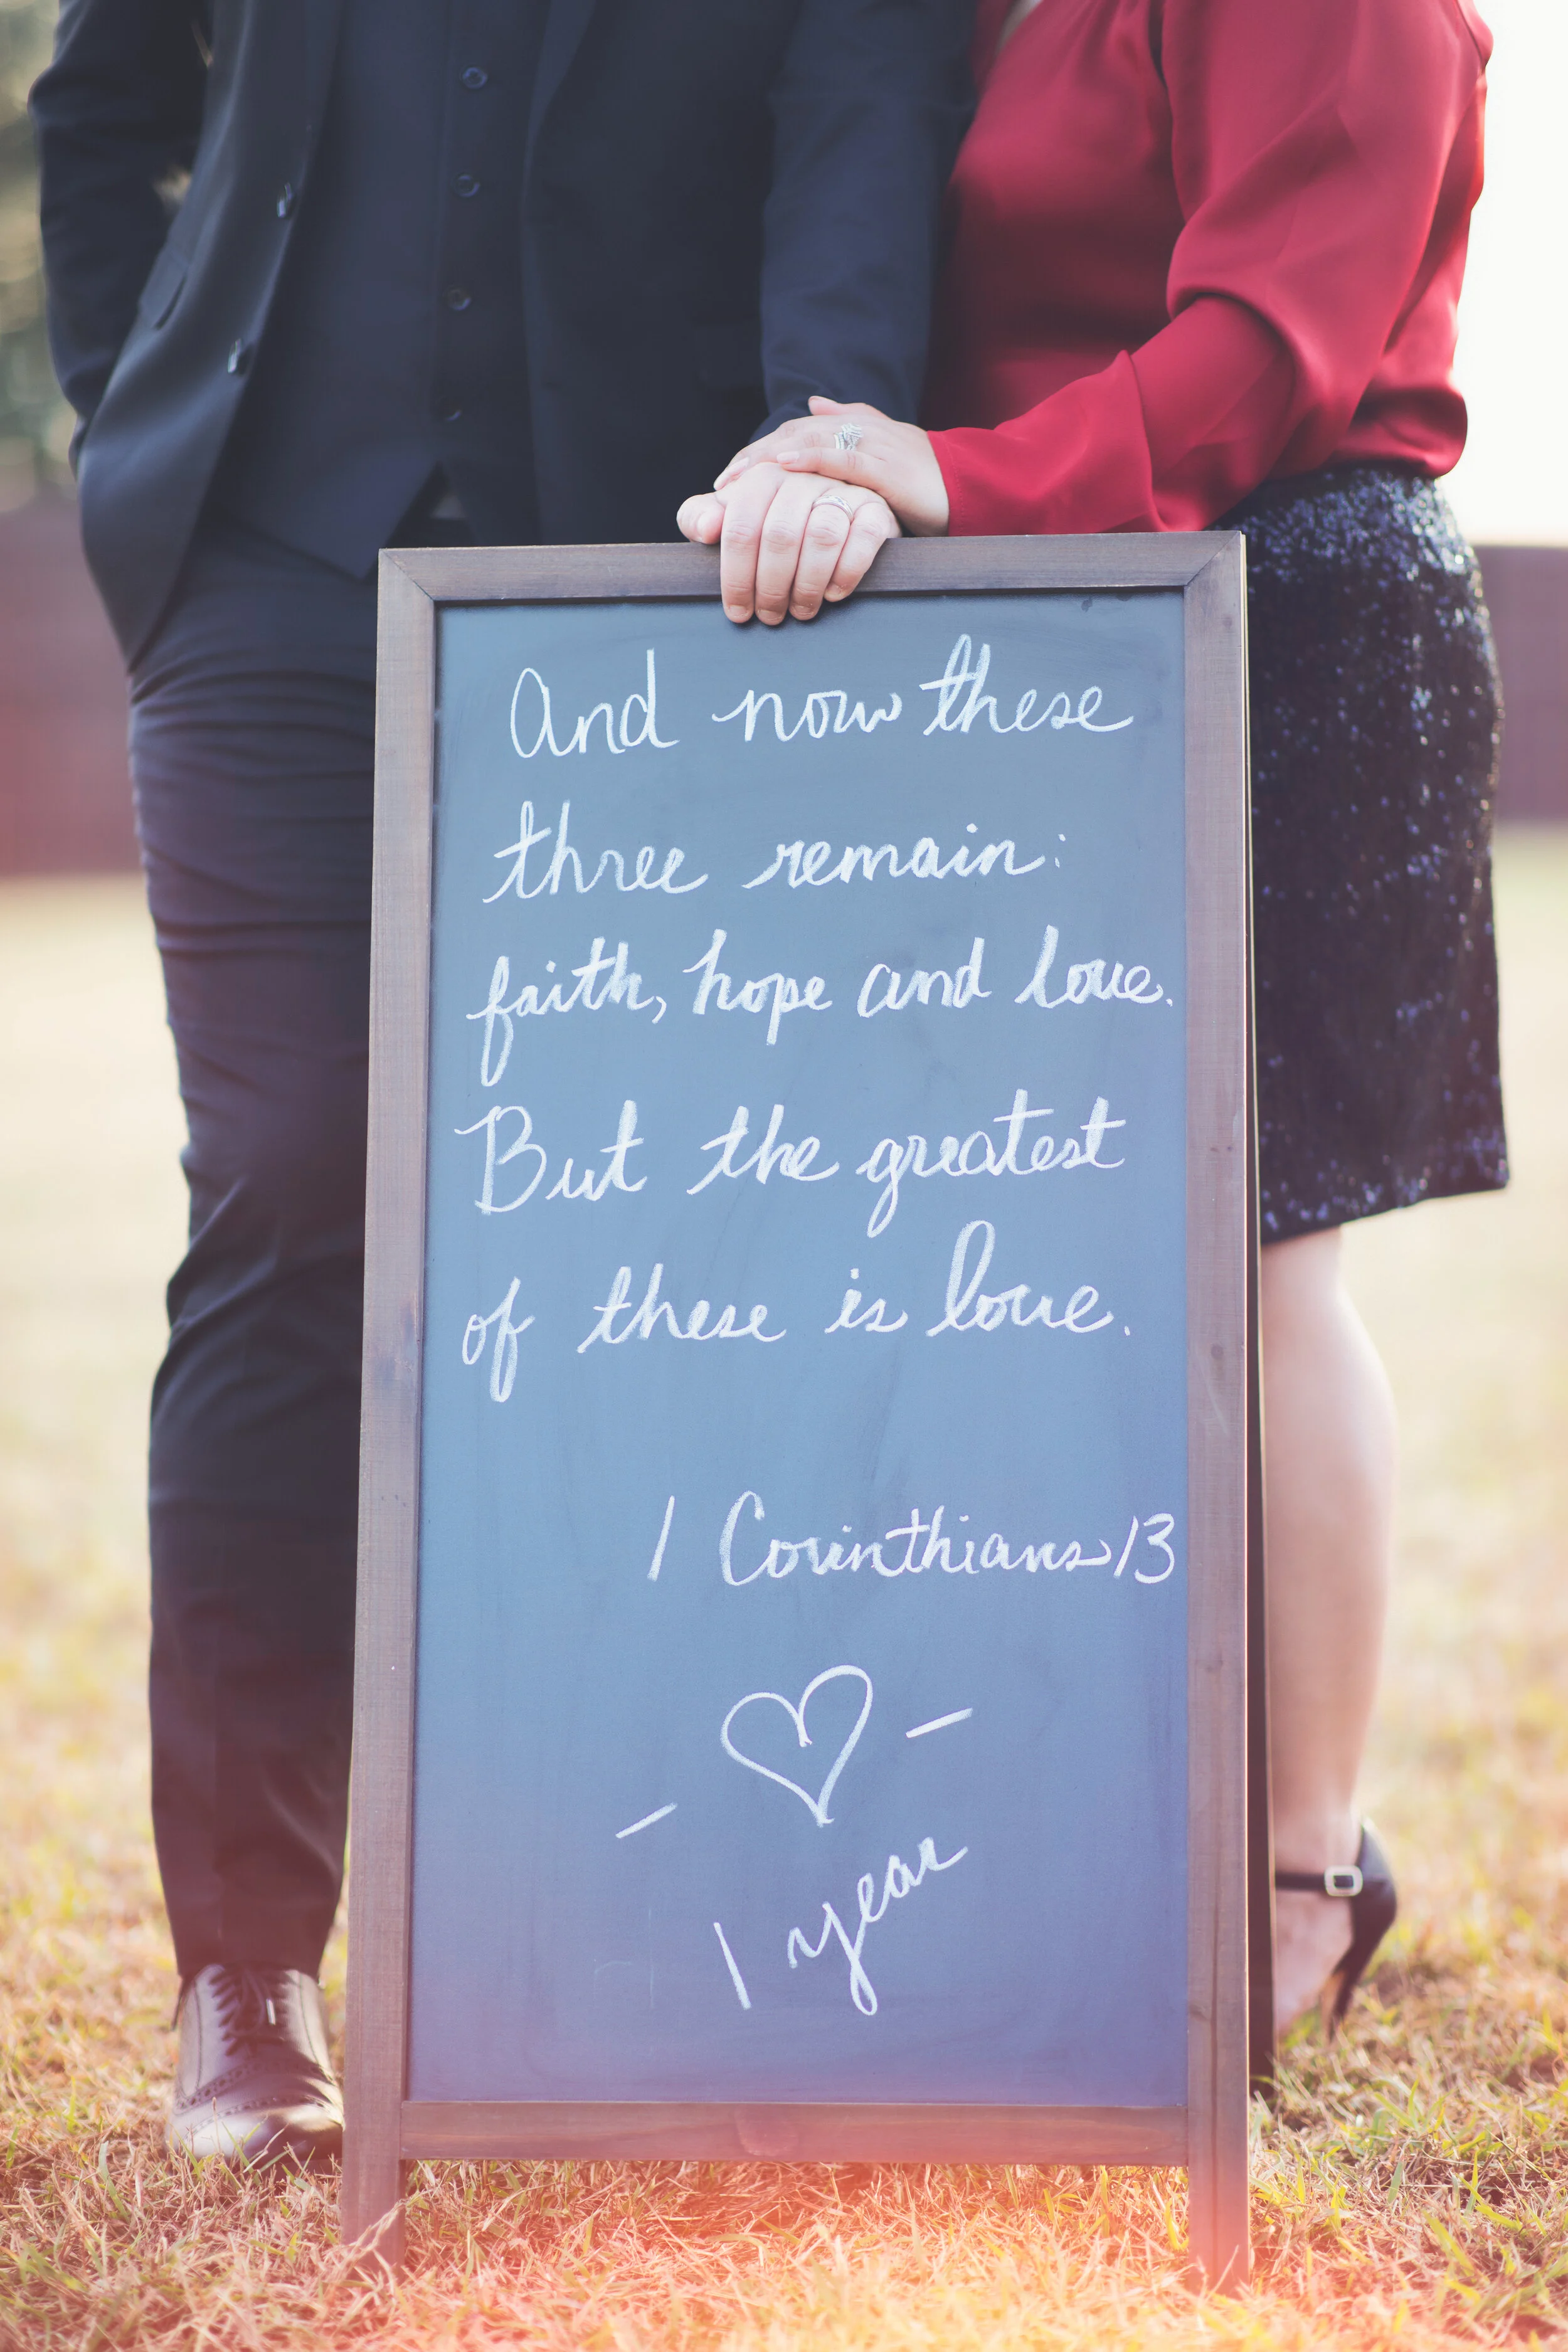 And now these
three remain:
faith, hope and love.
But the greatest
of these is love.
1 Corinthians 13
1 year